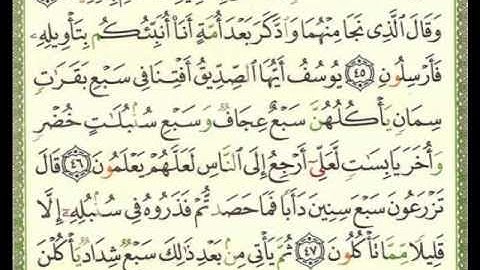 وَقَالَ ٱلَّذِى نَجَا مِنْهُمَا وَٱدَّكَرَ بَعْدَ أُمَّةٍ أَنَا۠ أُنَبِّئُكُم بِتَأْوِيلِهِۦ
فَأَرْسِلُونِ ٤٥ يُوسُفُ أَيُّهَا ٱلصِّدِّيقُ أَفْتِنَا فِى سَبْعِ بَقَرَٰتٍ
سِمَانٍ يَأْكُلُهُنَّ سَبْعٌ عِجَافٌ وَسَبْعِ سُنۢبُلَٰتٍ خُضْرٍ
وَأُخَرَ يَابِسَٰتٍ لَّعَلِّىٓ أَرْجِعُ إِلَى ٱلنَّاسِ لَعَلَّهُمْ يَعْلَمُونَ ٤٦ قَالَ
تَزْرَعُونَ سَبْعَ سِنِينَ دَأَبًا فَمَا حَصَدتُّمْ فَذَرُوهُ فِى سُنۢبُلِهِۦٓ إِلَّا
قَلِيلًا مِّمَّا تَأْكُلُونَ ٤٧ ثُمَّ يَأْتِى مِنۢ بَعْدِ ذَٰلِكَ سَبْعٌ شِدَادٌ يَأْكُلْنَ